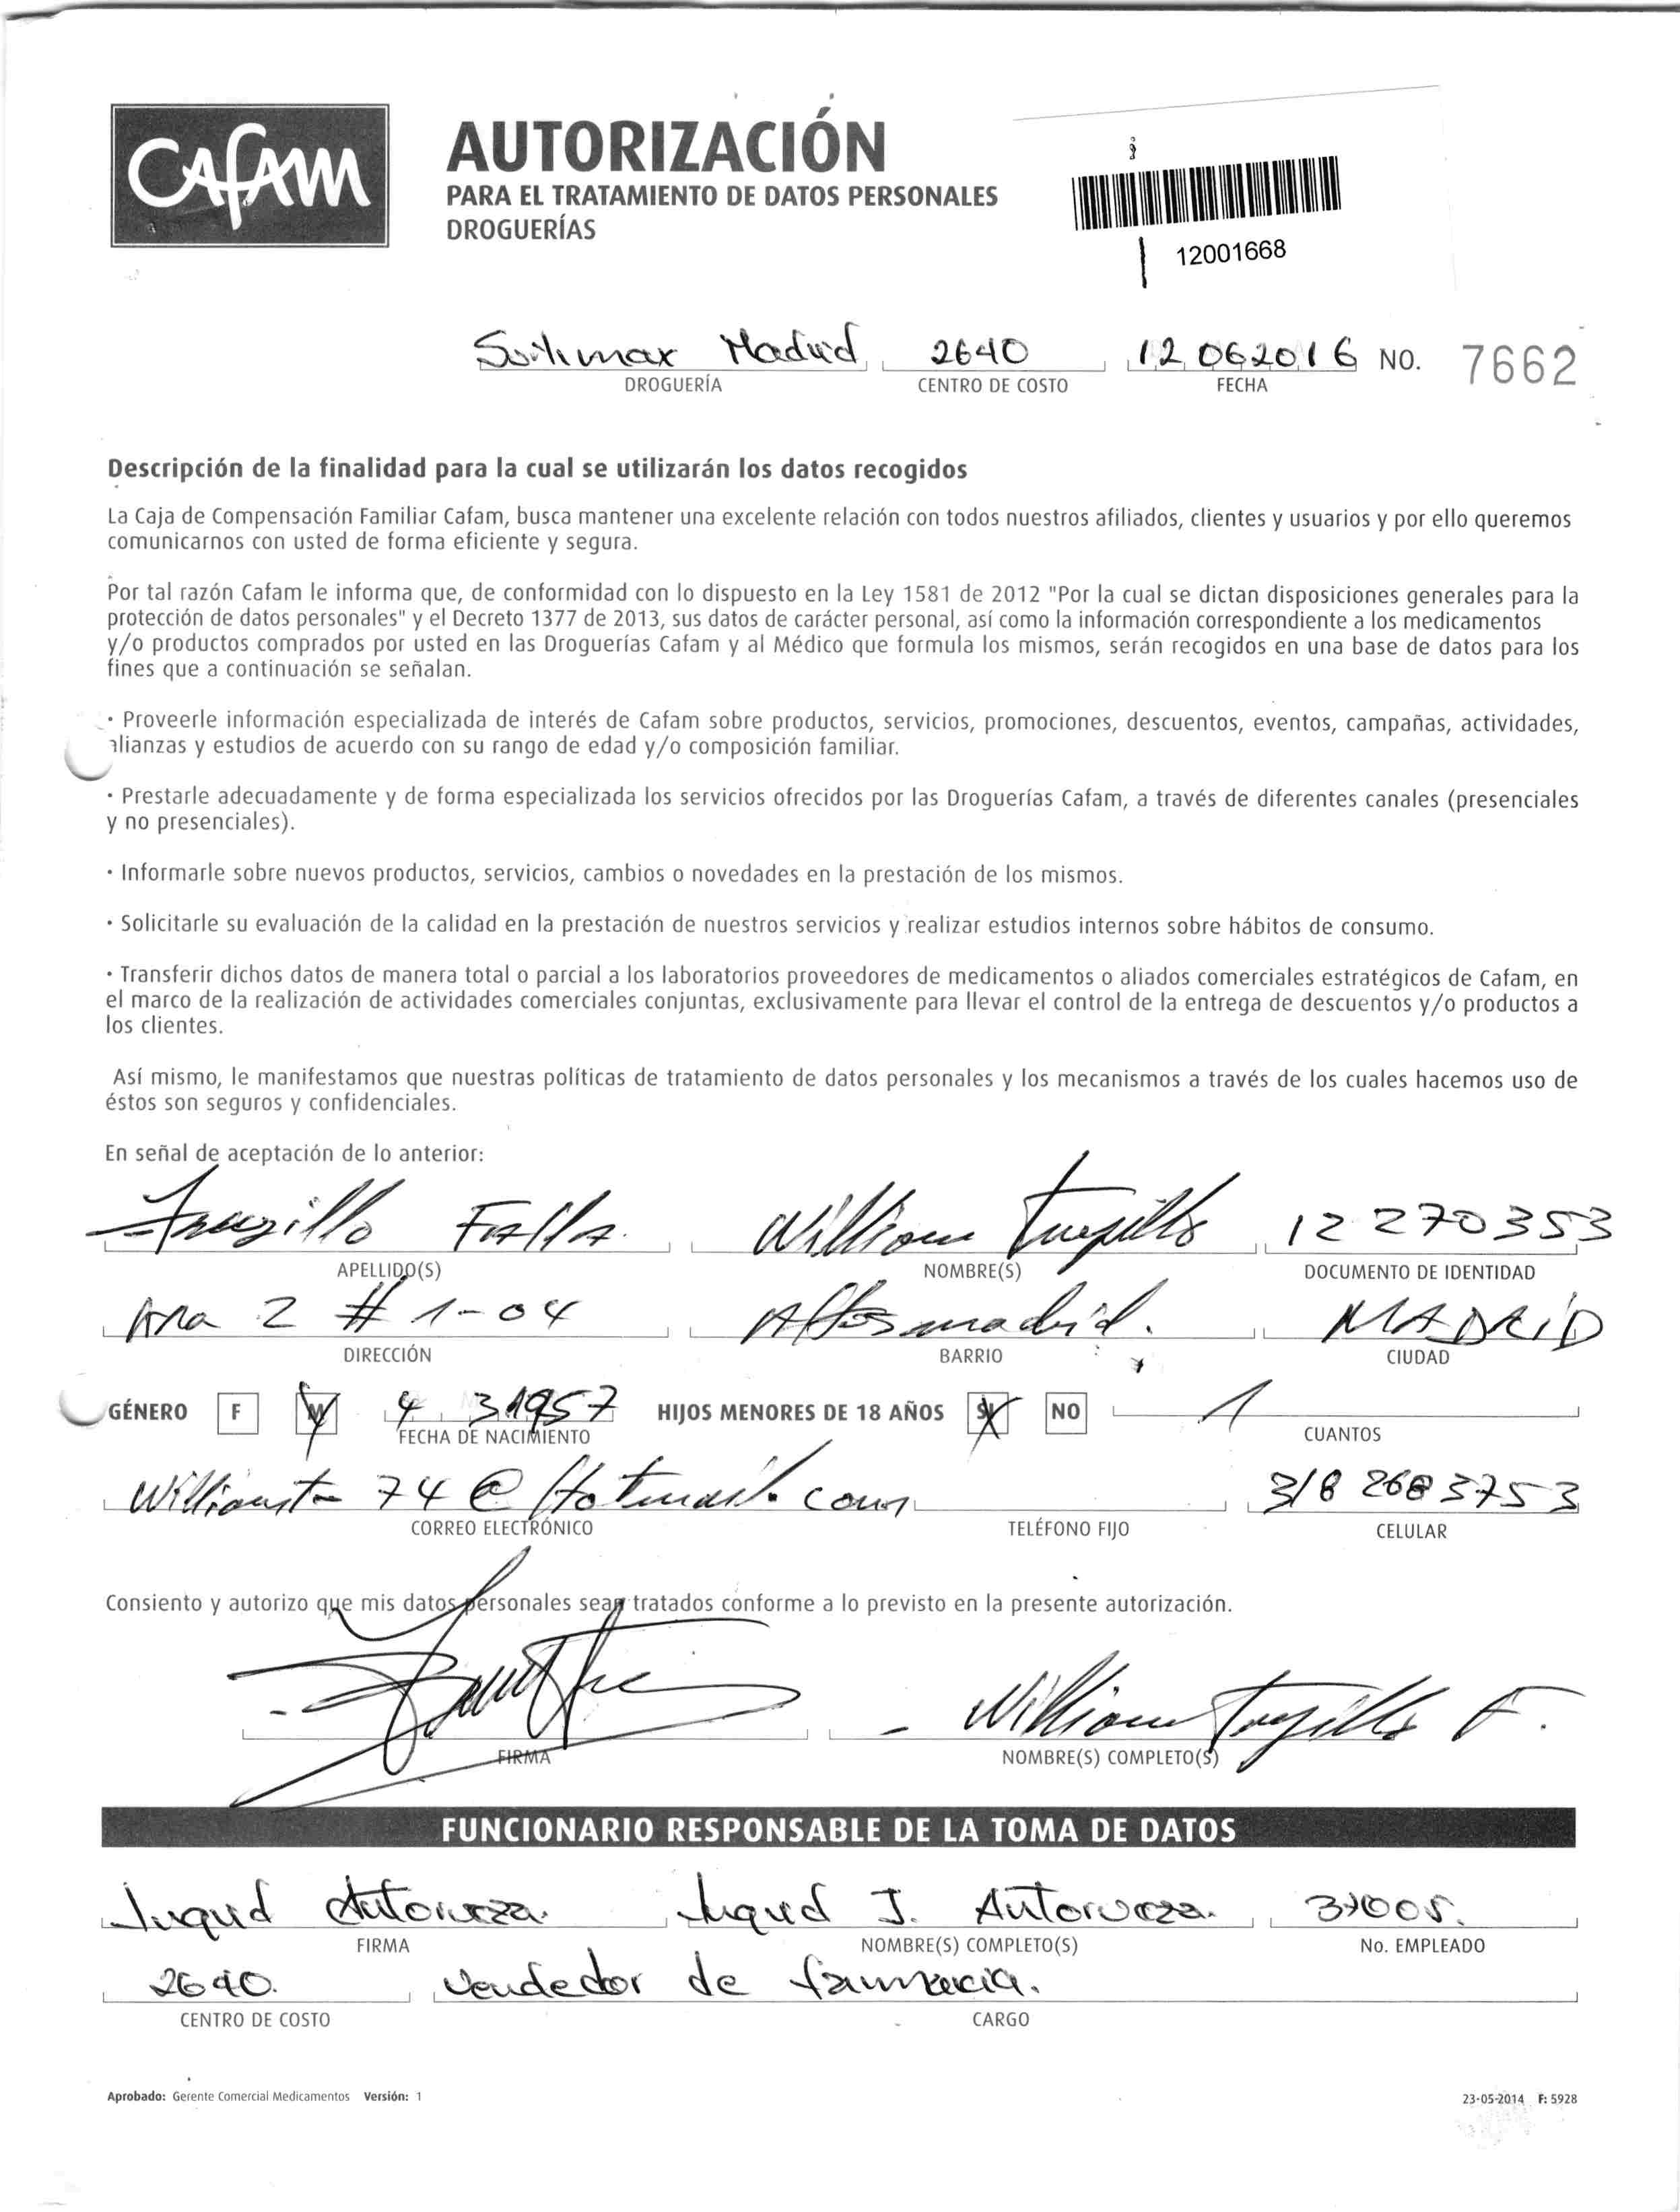 CAFAM
AUTORIZACIÓN
PARA EL TRATAMIENTO DE DATOS PERSONALES
DROGUERÍAS
12001668
Madrid 2640 12 06 2016 NO. 7662
DROGUERÍA CENTRO DE COSTO FECHA
Descripción de la finalidad para la cual se utilizarán los datos recogidos
La Caja de Compensación Familiar Cafam, busca mantener una excelente relación con todos nuestros afiliados, clientes y usuarios y por ello queremos
comunicarnos con usted de forma eficiente y segura.
Por tal razón Cafam le informa que, de conformidad con lo dispuesto en la Ley 1581 de 2012 "Por la cual se dictan disposiciones generales para la
protección de datos personales" y el Decreto 1377 de 2013, sus datos de carácter personal, así como la información correspondiente a los medicamentos
y/o productos comprados por usted en las Droguerías Cafam y al Médico que formula los mismos, serán recogidos en una base de datos para los
fines que a continuación se señalan.
· Proveerle información especializada de interés de Cafam sobre productos, servicios, promociones, descuentos, eventos, campañas, actividades,
alianzas y estudios de acuerdo con su rango de edad y/o composición familiar.
· Prestarle adecuadamente y de forma especializada los servicios ofrecidos por las Droguerías Cafam, a través de diferentes canales (presenciales
y no presenciales).
· Informarle sobre nuevos productos, servicios, cambios o novedades en la prestación de los mismos.
· Solicitarle su evaluación de la calidad en la prestación de nuestros servicios y realizar estudios internos sobre hábitos de consumo.
· Transferir dichos datos de manera total o parcial a los laboratorios proveedores de medicamentos o aliados comerciales estratégicos de Cafam, en
el marco de la realización de actividades comerciales conjuntas, exclusivamente para llevar el control de la entrega de descuentos y/o productos a
los clientes.
Así mismo, le manifestamos que nuestras políticas de tratamiento de datos personales y los mecanismos a través de los cuales hacemos uso de
éstos son seguros y confidenciales.
En señal de aceptación de lo anterior:
Trugillo Falla. William Trugillo 12 270353
APELLIDO(S) NOMBRE(S) DOCUMENTO DE IDENTIDAD
2 # 1-04 Altos madrid. MADRID
DIRECCIÓN BARRIO CIUDAD
GÉNERO F M 4 3 1957 HIJOS MENORES DE 18 AÑOS SI NO 1
FECHA DE NACIMIENTO CUANTOS
74@Hotmail.com 318 2683753
CORREO ELECTRÓNICO TELÉFONO FIJO CELULAR
Consiento y autorizo que mis datos personales sean tratados conforme a lo previsto en la presente autorización.
William Trugillo F.
FIRMA NOMBRE(S) COMPLETO(S)
FUNCIONARIO RESPONSABLE DE LA TOMA DE DATOS
J.
FIRMA NOMBRE(S) COMPLETO(S) No. EMPLEADO
2640. Vendedor de farmacia.
CENTRO DE COSTO CARGO
Aprobado: Gerente Comercial Medicamentos Versión: 1 23-05-2014 F: 5928